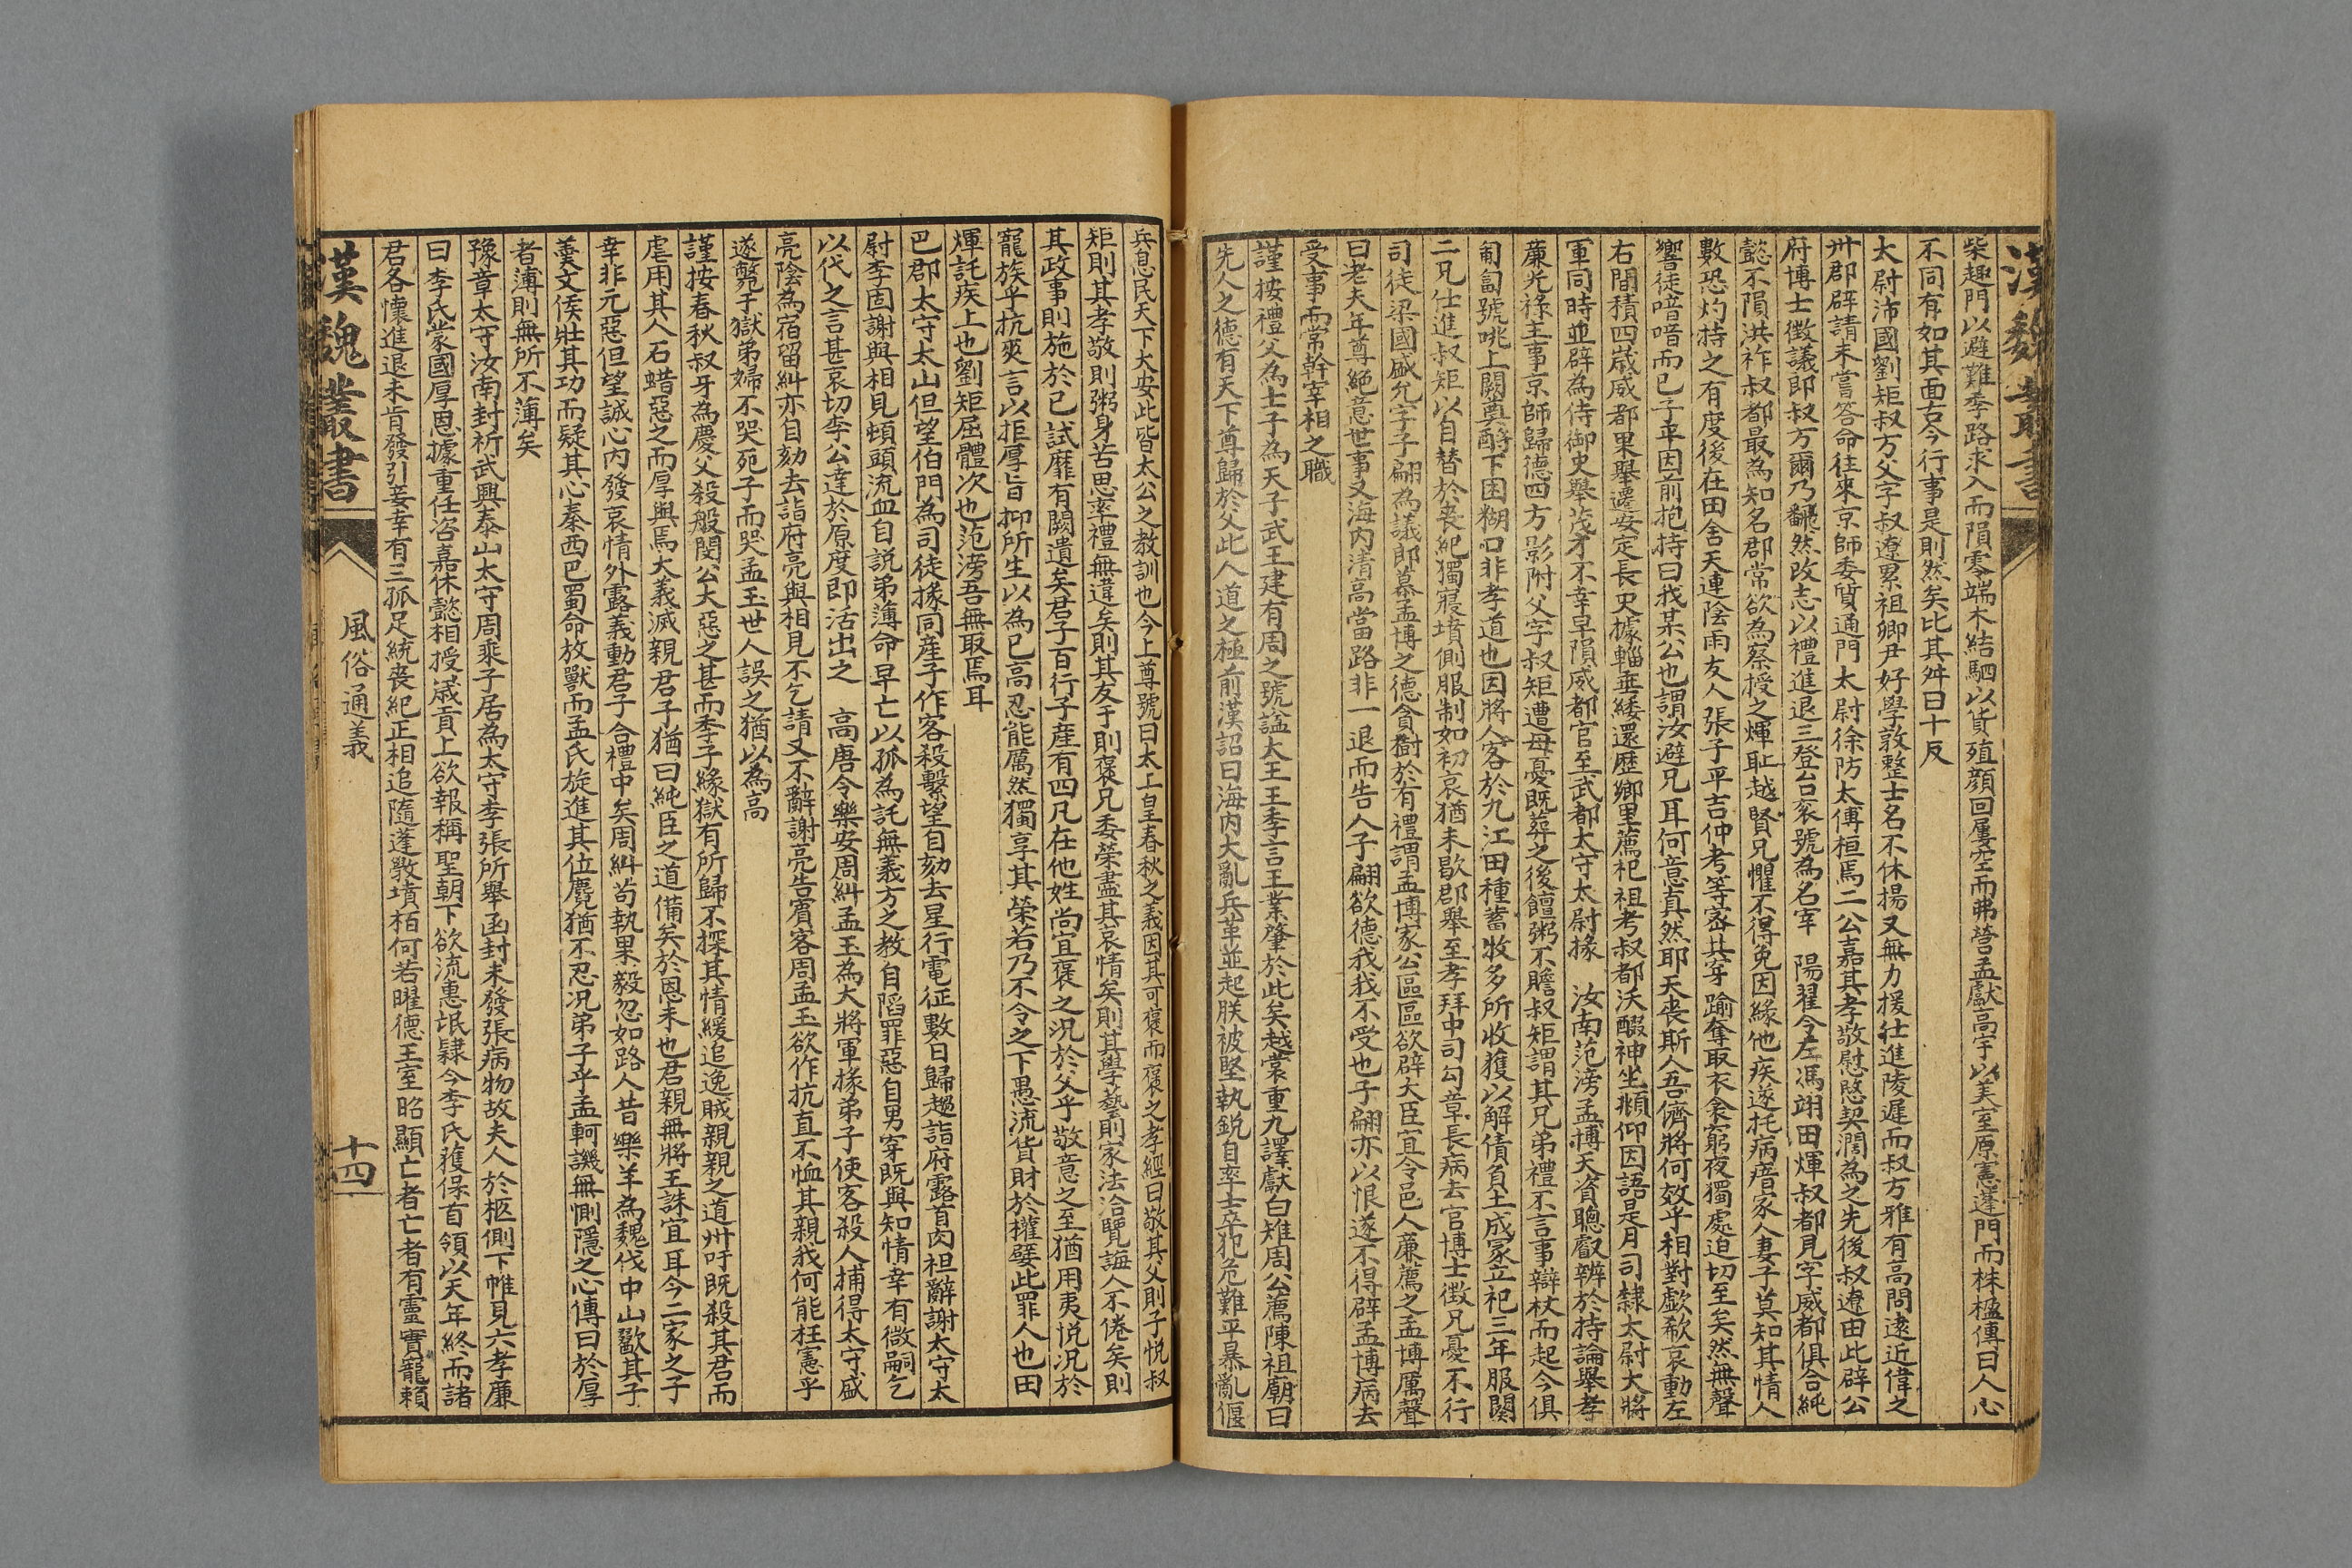 柴趣門以避難季路求入而隕零端木結駟以貨殖顏回屢空而弗營孟獻高宇以美室原憲蓬門而株楹傳曰人心
不同有如其面古今行事是則然矣比其舛曰十反
太尉沛國劉矩叔方父字叔遼累祖卿尹好學敦整士名不休揚又無力援仕進陵遲而叔方雅有高問遠近偉之
州郡辟請未嘗答命往來京師委質通門太尉徐防太傅桓焉二公嘉其孝敬慰愍契濶為之先後叔遼由此辟公
府博士徵議郎叔方爾乃翻然改志以禮進退三登台袞號為名宰　陽翟令左馮翊田煇叔都見字威都俱合純
懿不隕洪祚叔都最為知名郡常欲為察授之煇耻越賢兄懼不得免因緣他疾遂托病瘖家人妻子莫知其情人
數恐灼持之有度後在田舍天連陰雨友人張子平吉仲考等密共穿踰奪取衣衾窮夜獨處迫切至矣然無聲
響徒喑喑而已子平因前抱持曰我某公也謂汝避兄耳何意真然耶天喪斯人吾儕將何效乎相對歔欷哀動左
右間積四歲威都果舉遷安定長史據輜垂緌還歷鄉里薦祀祖考叔都沃醊神坐頫仰因語是月司隸太尉大將
軍同時並辟為侍御史舉茂才不幸早隕威都官至武都太守太尉掾　汝南范滂孟博天資聰叡辨於持論舉孝
廉光祿主事京師歸德四方影附父字叔矩遭母憂既葬之後饘粥不贍叔矩謂其兄弟禮不言事辯杖而起今俱
匍匐號咷上闕奠酹下困糊口非孝道也因將人客於九江田種蓄牧多所收獲以解債負土成冢立祀三年服闋
二兄仕進叔矩以自替於喪紀獨寢墳側服制如初哀猶未歇郡舉至孝拜中司勾章長病去官博士徵兄憂不行
司徒梁國盛允字子翩為議郎慕孟博之德貪樹於有禮謂孟博家公區區欲辟大臣宜令邑人廉薦之孟博厲聲
曰老夫年尊絕意世事又海內清高當路非一退而告人子翩欲德我我不受也子翩亦以恨遂不得辟孟博病去
受事而常幹宰相之職
謹按禮父為士子為天子武王建有周之號謚大王王季言王業肇於此矣越裳重九譯獻白雉周公薦陳祖廟曰
先人之德有天下尊歸於父此人道之極前漢詔曰海內大亂兵革並起朕被堅執銳自率士卒犯危難平暴亂偃
兵息民天下大安此皆太公之教訓也今上尊號曰太上皇春秋之義因其可褒而褒之孝經曰敬其父則子悅叔
矩則其孝敬則粥身苦思率禮無違矣則其友于則褒兄委榮盡其哀情矣則其學藝則家法洽覽誨人不倦矣則
其政事則施於已試靡有闕遺矣君子百行子產有四凡在他姓尚宜褒之況於父乎敬意之至猶用夷悅況於
寵族乎抗爽言以拒厚旨抑所生以為已高忍能厲然獨享其榮若乃不令之下愚流貨財於權嬖此罪人也田
煇託疾上也劉矩屈體次也范滂吾無取焉耳
巴郡太守太山但望伯門為司徒掾同產子作客殺繫望自劾去星行電征數日歸趨詣府露首肉袒辭謝太守太
尉李固謝與相見頓頭流血自説弟薄命早亡以孤為託無義方之教自陷罪惡自男穿既與知情幸有微嗣乞
以代之言甚哀切李公達於原度即活出之　高唐令樂安周糾孟玉為大將軍掾弟子使客殺人捕得太守盛
亮陰為宿留糾亦自劾去詣府亮與相見不乞請又不辭謝亮告賓客周孟玉欲作抗直不恤其親我何能枉憲乎
遂斃于獄弟婦不哭死子而哭孟玉世人誤之猶以為高
謹按春秋叔牙為慶父殺般閔公大惡之甚而季子緣獄有所歸不探其情緩追逸賊親親之道州吁既殺其君而
虐用其人石蜡惡之而厚與焉大義滅親君子猶曰純臣之道備矣於恩未也君親無將王誅宜耳今二家之子
幸非元惡但望誠心內發哀情外露義動君子合禮中矣周糾苟執果毅忽如路人昔樂羊為魏伐中山歠其子
羹文侯壯其功而疑其心秦西巴蜀命放獸而孟氏旋進其位麑猶不忍況弟子乎孟軻譏無惻隱之心傳曰於厚
者薄則無所不薄矣
豫章太守汝南封祈武興泰山太守周乘子居為太守李張所舉函封未發張病物故夫人於柩側下帷見六孝廉
曰李氏蒙國厚恩據重任咨嘉休懿相授歲貢上欲報稱聖朝下欲流惠氓隸今李氏獲保首領以天年終而諸
君各懷進退未肯發引妾幸有三孤足統喪紀正相追隨蓬斅墳栢何若曜德王室昭顯亡者亡者有靈實寵賴
漢魏叢書
風俗通義
十四